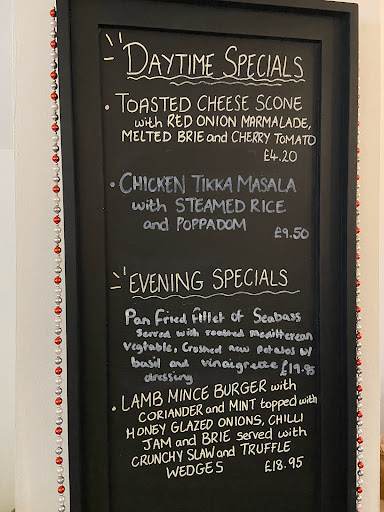 DAYTIME SPECIALS
• TOASTED CHEESE SCONE
with RED ONION MARMALADE,
MELTED BRIE and CHERRY TOMATO
£4.20
• CHICKEN TIKKA MASALA
with STEAMED RICE
and POPPADOM
£9.50
EVENING SPECIALS
Pan Fried Fillet of Seabass
Served with roasted meditterean
vegtable, Crushed new potatos w/
basil and vinaigrette £19.95
dressing
• LAMB MINCE BURGER with
CORIANDER and MINT topped with
HONEY GLAZED ONIONS, CHILLI
JAM and BRIE served with
CRUNCHY SLAW and TRUFFLE
WEDGES £18.95